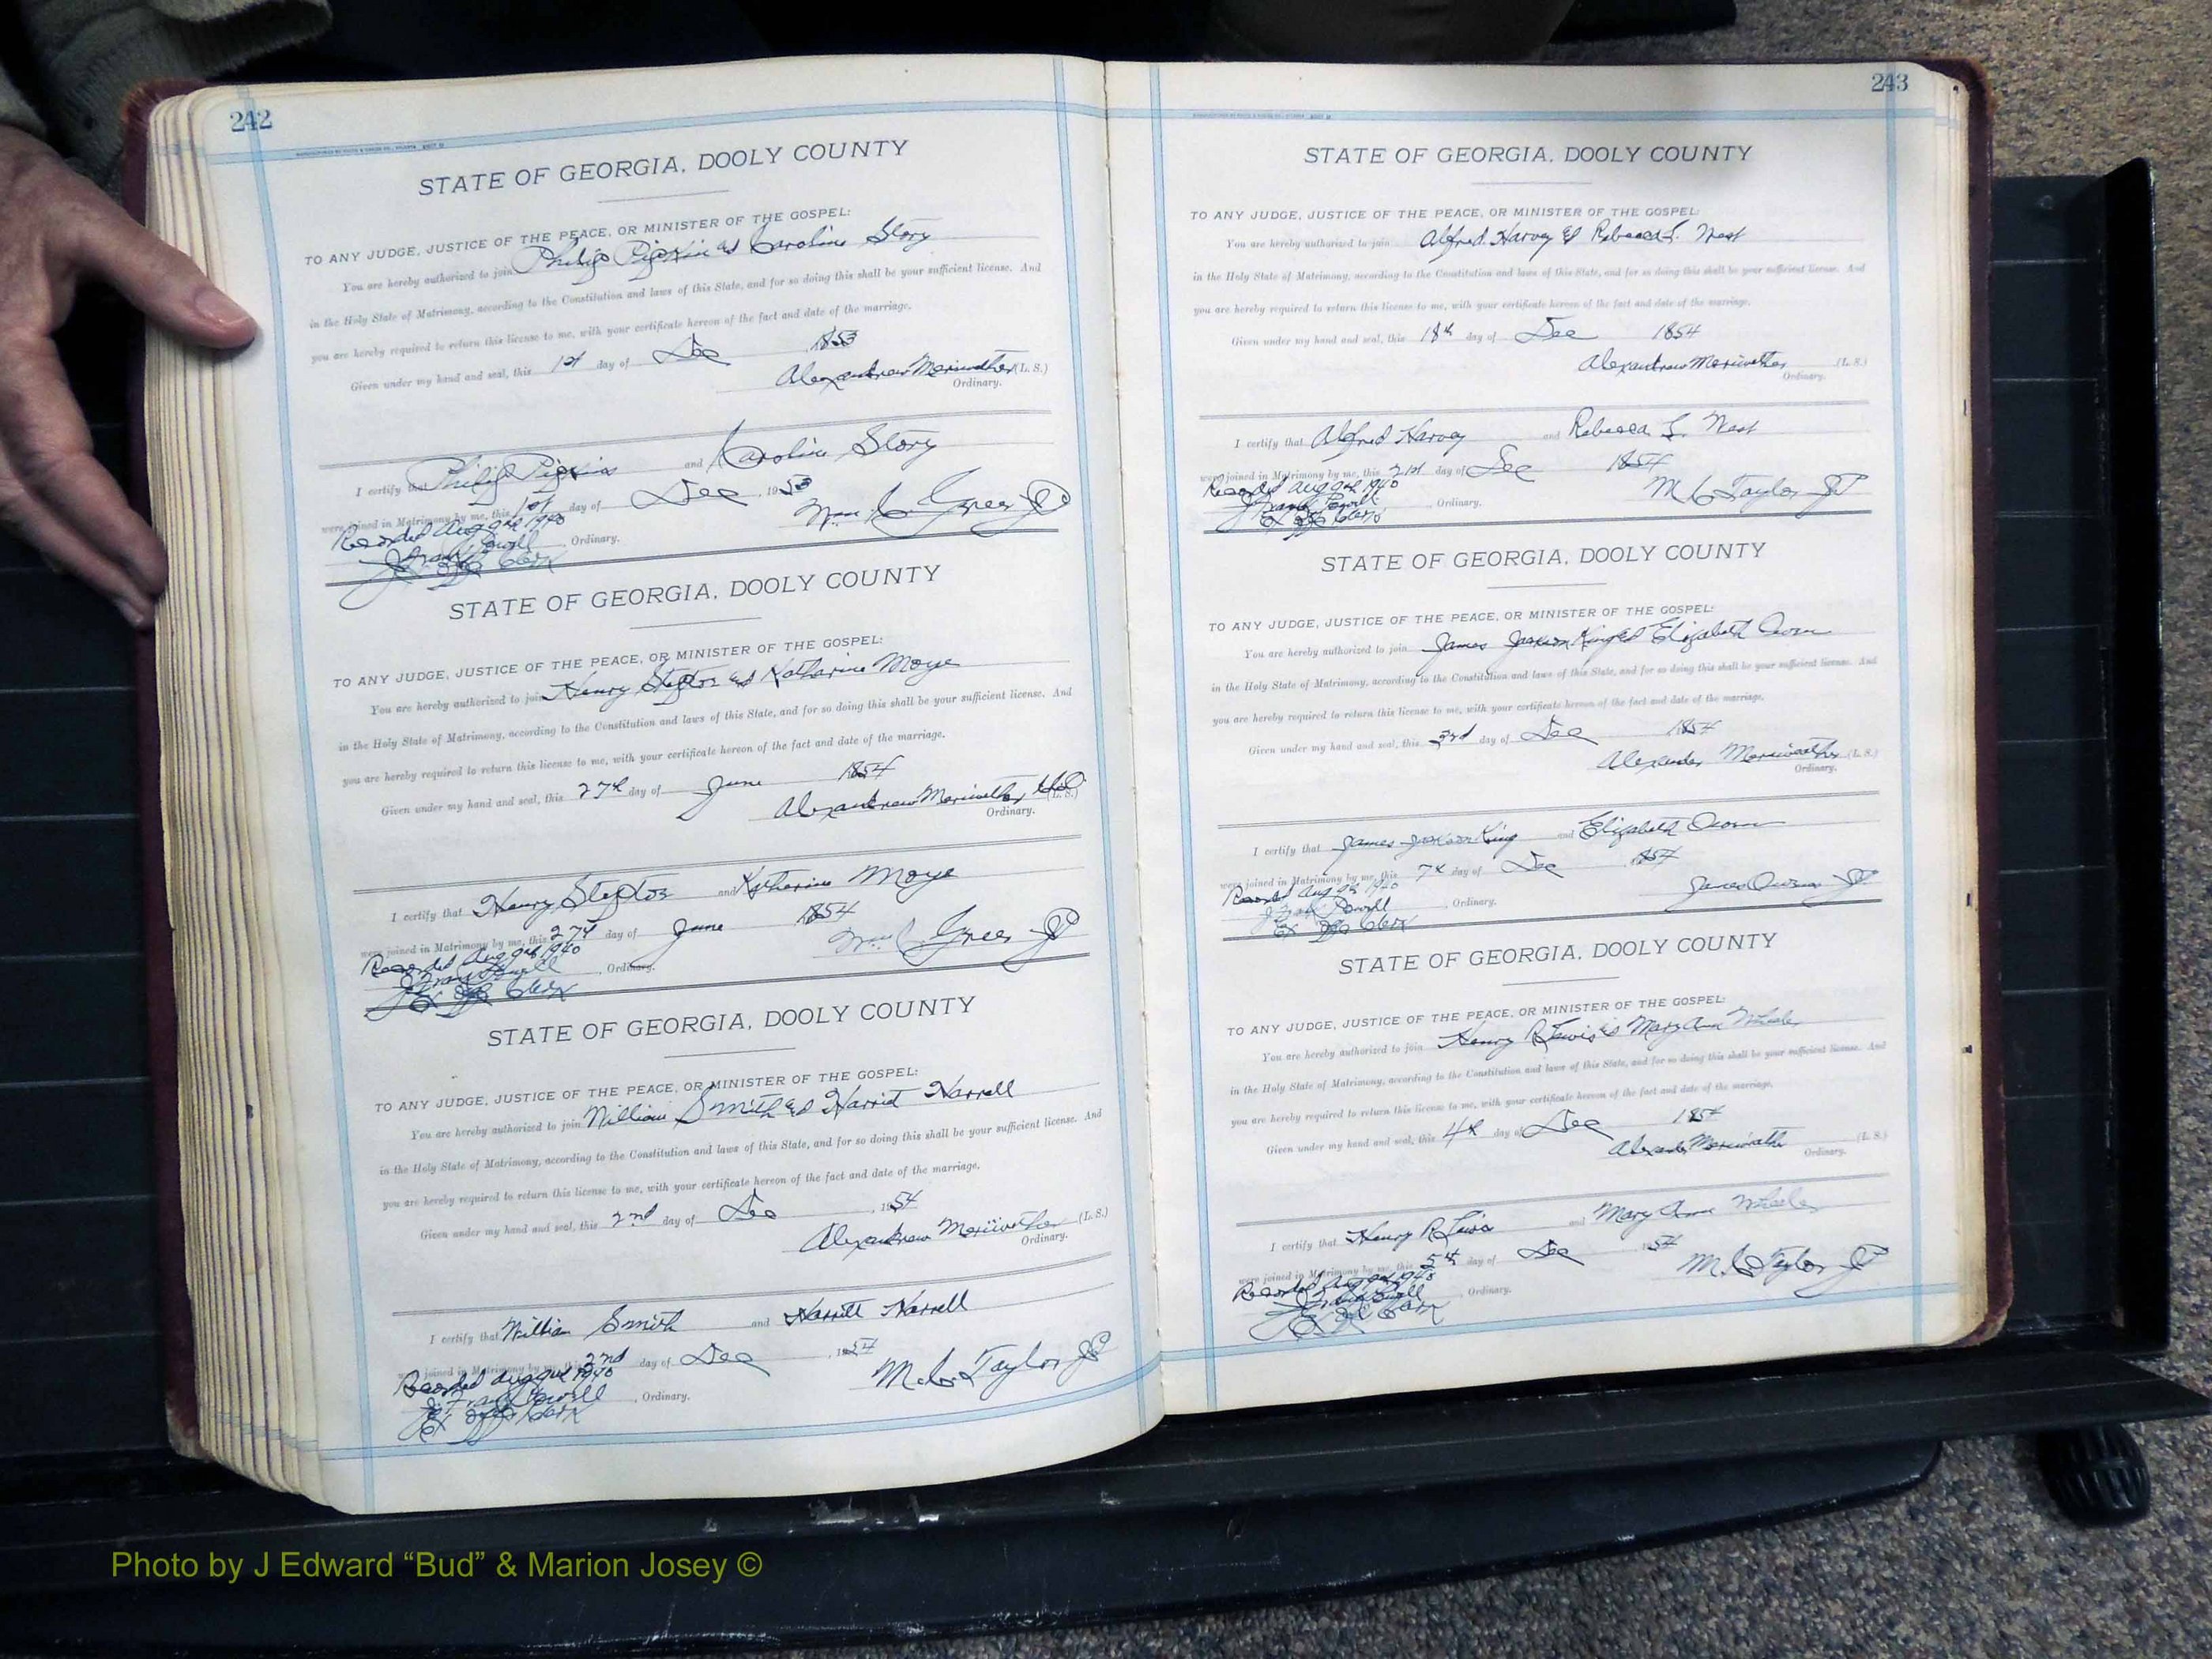 242
STATE OF GEORGIA, DOOLY COUNTY
TO ANY JUDGE, JUSTICE OF THE PEACE, OR MINISTER OF THE GOSPEL:
You are hereby authorized to join Philip Pipkin & Caroline Story
in the Holy State of Matrimony, according to the Constitution and laws of this State, and for so doing this shall be your sufficient license. And
you are hereby required to return this license to me, with your certificate hereon of the fact and date of the marriage.
Given under my hand and seal, this 1st day of Dec 1853
Alexandrew Meriwether (L. S.)
Ordinary.
I certify that Philip Pipkin and Caroline Story
were joined in Matrimony by me, this 1st day of Dec , 1953
Wm C Greer JP
Recorded Aug 9th 1940
, Ordinary.
J Frank Powell
Ex off Clerk
STATE OF GEORGIA, DOOLY COUNTY
TO ANY JUDGE, JUSTICE OF THE PEACE, OR MINISTER OF THE GOSPEL:
You are hereby authorized to join Henry Slepton & Katharine Moye
in the Holy State of Matrimony, according to the Constitution and laws of this State, and for so doing this shall be your sufficient license. And
you are hereby required to return this license to me, with your certificate hereon of the fact and date of the marriage.
Given under my hand and seal, this 27th day of June 1854
Alexandrew Meriwether (L. S.)
Ordinary.
I certify that Henry Slepton and Katherine Moye
were joined in Matrimony by me, this 27th day of June 1854
Wm C Greer JP
Recorded Aug 9th 1940
, Ordinary.
J Frank Powell
Ex off Clerk
STATE OF GEORGIA, DOOLY COUNTY
TO ANY JUDGE, JUSTICE OF THE PEACE, OR MINISTER OF THE GOSPEL:
You are hereby authorized to join William Smith & Harriet Harrell
in the Holy State of Matrimony, according to the Constitution and laws of this State, and for so doing this shall be your sufficient license. And
you are hereby required to return this license to me, with your certificate hereon of the fact and date of the marriage.
Given under my hand and seal, this 2nd day of Dec , 1954
Alexandrew Meriwether (L. S.)
Ordinary.
I certify that William Smith and Harriett Harrell
were joined in Matrimony by me, this 2nd day of Dec , 1954
M. C. Taylor JP
Recorded Aug 9th 1940
, Ordinary.
J Frank Powell
Ex off Clerk
243
STATE OF GEORGIA, DOOLY COUNTY
TO ANY JUDGE, JUSTICE OF THE PEACE, OR MINISTER OF THE GOSPEL:
You are hereby authorized to join Alfred Harvey & Rebecca S. West
in the Holy State of Matrimony, according to the Constitution and laws of this State, and for so doing this shall be your sufficient license. And
you are hereby required to return this license to me, with your certificate hereon of the fact and date of the marriage.
Given under my hand and seal, this 18th day of Dec 1854
Alexandrew Meriwether (L. S.)
Ordinary.
I certify that Alfred Harvey and Rebecca S. West
were joined in Matrimony by me, this 21st day of Dec 1854
M C Taylor JP
Recorded Aug 9th 1940
, Ordinary.
J Frank Powell
Ex off Clerk
STATE OF GEORGIA, DOOLY COUNTY
TO ANY JUDGE, JUSTICE OF THE PEACE, OR MINISTER OF THE GOSPEL:
You are hereby authorized to join James Jackson King & Elizabeth
in the Holy State of Matrimony, according to the Constitution and laws of this State, and for so doing this shall be your sufficient license. And
you are hereby required to return this license to me, with your certificate hereon of the fact and date of the marriage.
Given under my hand and seal, this 3rd day of Dec 1854
Alexander Meriweather (L. S.)
Ordinary.
I certify that James Jackson King and Elizabeth
were joined in Matrimony by me, this 7th day of Dec 1854
James JP
Recorded Aug 9th 1940
, Ordinary.
J Frank Powell
Ex off Clerk
STATE OF GEORGIA, DOOLY COUNTY
TO ANY JUDGE, JUSTICE OF THE PEACE, OR MINISTER OF THE GOSPEL:
You are hereby authorized to join Henry R Lewis & Mary Ann Wheeler
in the Holy State of Matrimony, according to the Constitution and laws of this State, and for so doing this shall be your sufficient license. And
you are hereby required to return this license to me, with your certificate hereon of the fact and date of the marriage.
Given under my hand and seal, this 4th day of Dec 1854
Alexander Meriwather (L. S.)
Ordinary.
I certify that Henry R Lewis and Mary Ann Wheeler
were joined in Matrimony by me, this 5th day of Dec 1954
M. C Taylor JP
Recorded Aug 9th 1940
, Ordinary.
J Frank Powell
Ex off Clerk
Photo by J Edward “Bud” & Marion Josey ©